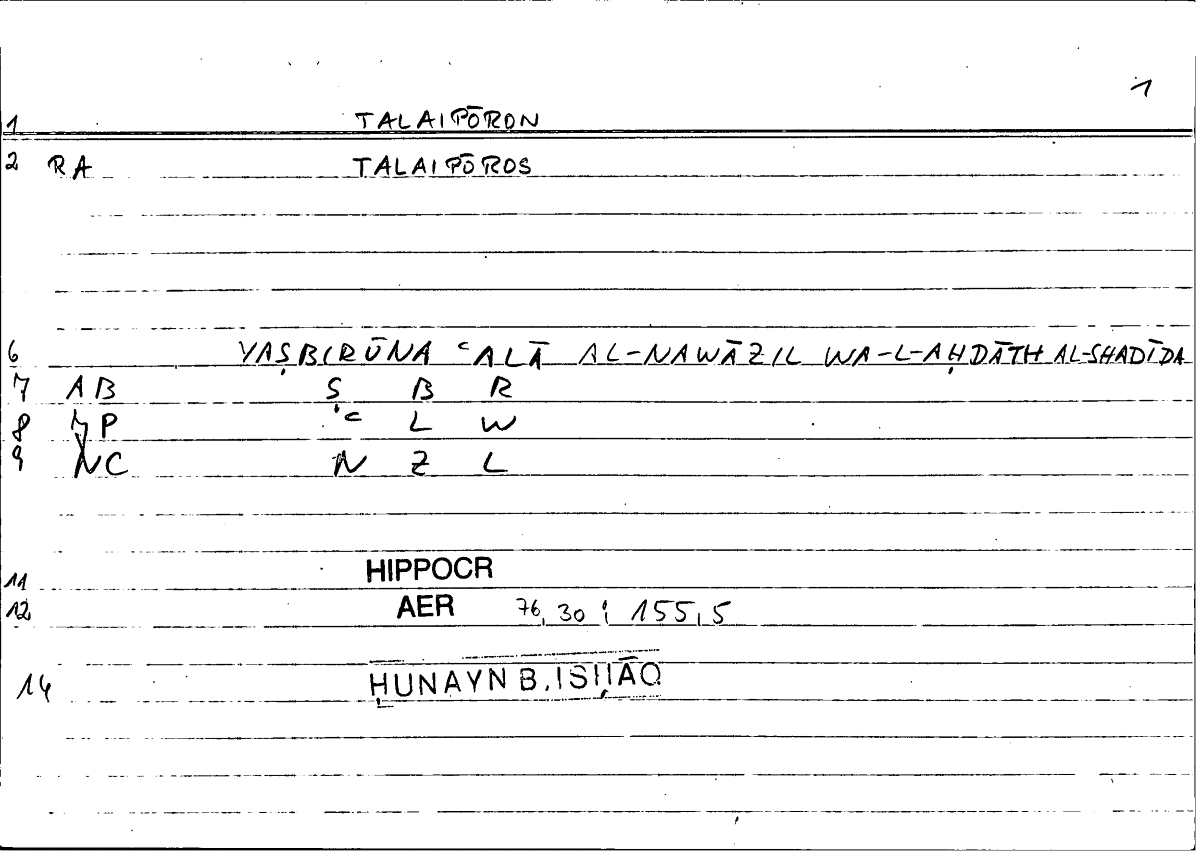 1
1 TALAIPŌRON
2 RA TALAIPŌROS
6 YAṢBIRŪNA ᶜALĀ AL-NAWĀZIL WA-L-AḤDĀTH AL-SHADĪDA
7 AB Ṣ B R
8 JP ᶜ L W
9 NC N Z L
11 HIPPOCR
12 AER 76,30 ; 155,5
14 ḤUNAYN B. ISḤĀQ